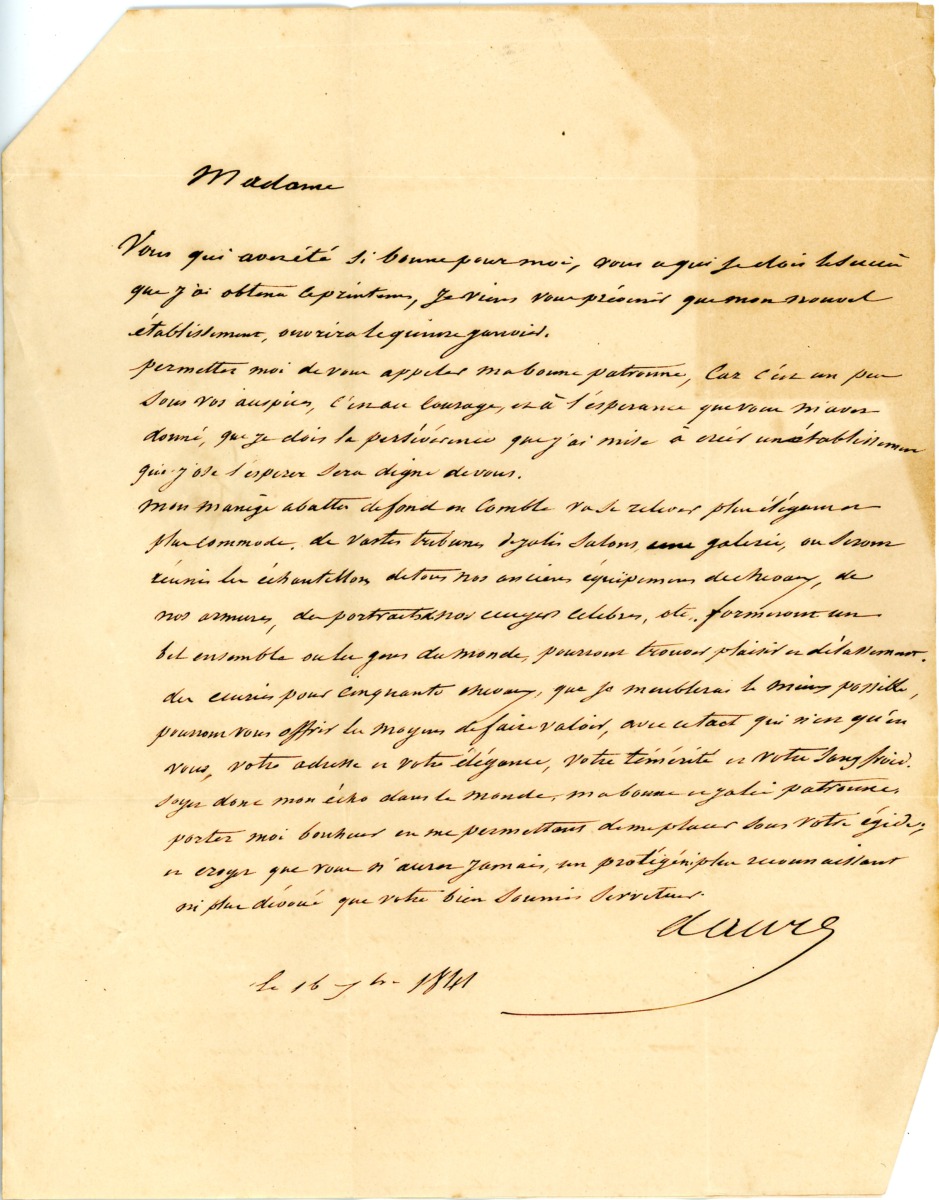 Madame
Vous qui avez été si bonne pour moi, vous a qui je dois le succès
que j'ai obtenu ce printems, je viens vous prévenir que mon nouvel
établissement, ouvrira le quinze janvier.
permettez moi de vous appeler ma bonne patronne, Car c'est un peu
sous vos auspices, c'est au courage, et à l'espérance que vous m'avez
donné, que je dois la persévérence que j'ai mise à créer un établissement
qui j'ose l'espérer sera digne de vous.
mon manège abattu de fond en comble va se relever plus élégant et
plus commode. de vastes tribunes de jolis salons, une galerie, ou seront
réunis les échantillons de tous nos anciens équipemens de chevaux, de
nos armures, des portraits de nos ecuyers celebres, etc. formeront un
bel ensemble ou les gens du monde, pourront trouver plaisir et délassement.
des ecuries pour cinquante chevaux, que je meublerai le mieux possible,
pourront vous offrir les moyens de faire valoir, avec ce tact qui n'est qu'en
vous, votre adresse et votre élégance, votre témérité et votre sang froid.
soyez donc mon écho dans le monde, ma bonne et jolie patronne,
portez moi bonheur en me permettant de me placer sous votre égide,
et croyez que vous n'aurez jamais, un protégé ni plus reconnaissant
ni plus dévoué que votre bien soumis serviteur.
daure
le 16 bre 1841